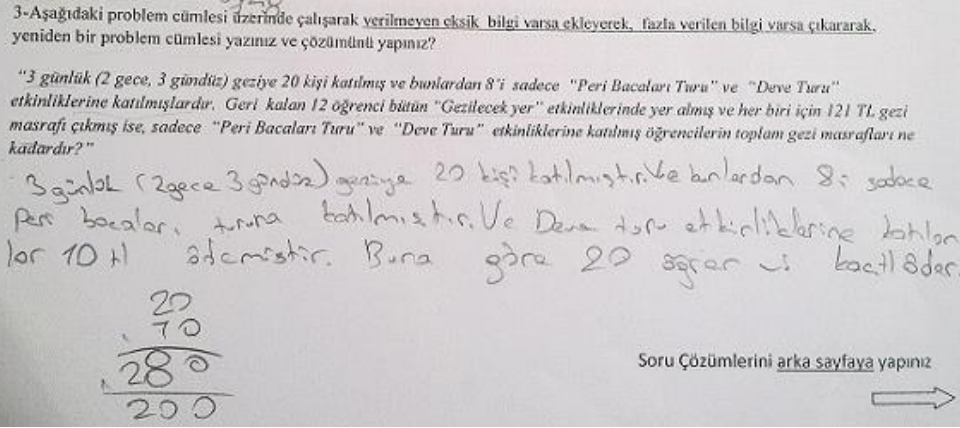 3-Aşağıdaki problem cümlesi üzerinde çalışarak verilmeyen eksik bilgi varsa ekleyerek, fazla verilen bilgi varsa çıkararak,
yeniden bir problem cümlesi yazınız ve çözümünü yapınız?
"3 günlük (2 gece, 3 gündüz) geziye 20 kişi katılmış ve bunlardan 8'i sadece "Peri Bacaları Turu" ve "Deve Turu"
etkinliklerine katılmışlardır. Geri kalan 12 öğrenci bütün "Gezilecek yer" etkinliklerinde yer almış ve her biri için 121 TL gezi
masrafı çıkmış ise, sadece "Peri Bacaları Turu" ve "Deve Turu" etkinliklerine katılmış öğrencilerin toplam gezi masrafları ne
kadardır?"
3 günlük (2gece 3gündüz) geziye 20 kişi katılmıştır. Ve bunlardan 8i sadece
Peri bacaları turuna katılmıştır. Ve Deve turu etkinliklerine katılan
lar 10 tl ödemiştir. Buna göre 20 öğren ci kaç tl öder.
20
10
280
200
Soru Çözümlerini arka sayfaya yapınız